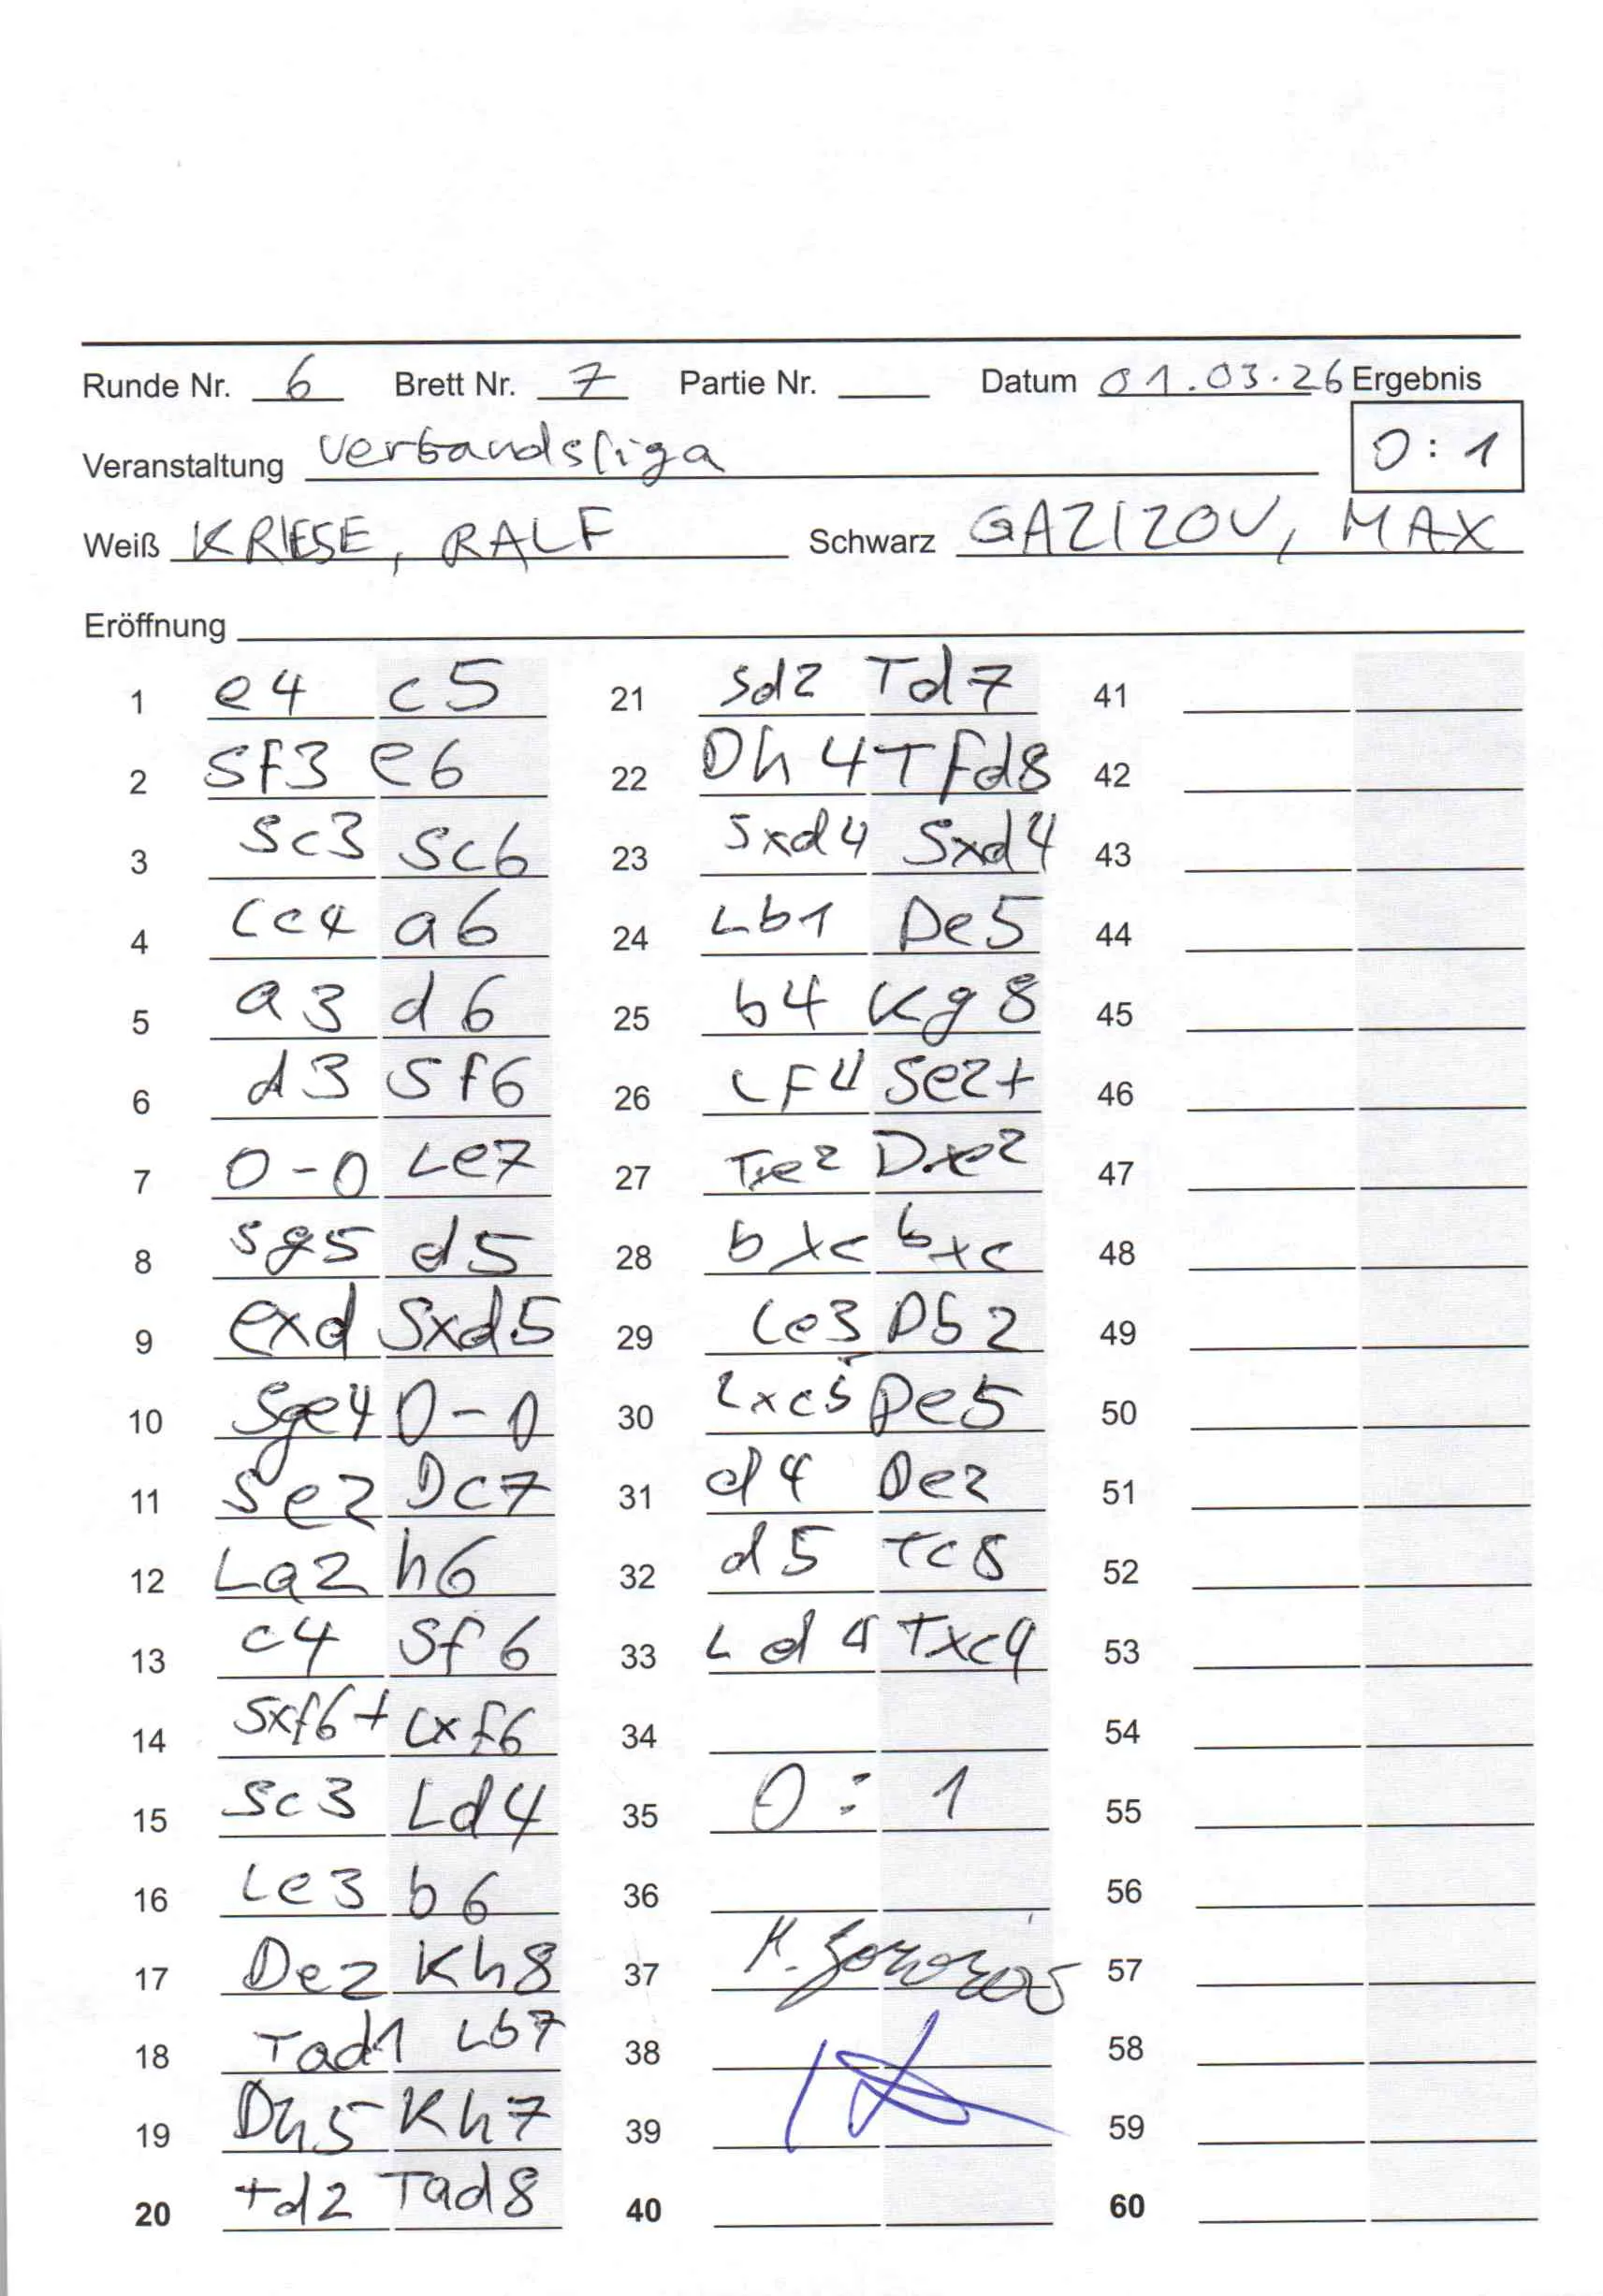 Runde Nr. 6 Brett Nr. 7 Partie Nr. Datum 01.03.26 Ergebnis
Veranstaltung Verbandsliga 0:1
Weiß KRIESE, RALF Schwarz GAZIZOV, MAX
Eröffnung
1 e4 c5 21 Sd2 Td7 41
2 Sf3 e6 22 Dh4 Tfd8 42
3 Sc3 Sc6 23 Sxd4 Sxd4 43
4 Lc4 a6 24 Lb1 De5 44
5 a3 d6 25 b4 Kg8 45
6 d3 Sf6 26 Lf4 Se2+ 46
7 0-0 Le7 27 Txe2 Dxe2 47
8 Sg5 d5 28 bxc bxc 48
9 exd Sxd5 29 Le3 Db2 49
10 Sge4 0-0 30 Lxc5 De5 50
11 Se2 Dc7 31 d4 De2 51
12 La2 h6 32 d5 Tc8 52
13 c4 Sf6 33 Ld4 Txc4 53
14 Sxf6+ Lxf6 34 54
15 Sc3 Ld4 35 0:1 55
16 Le3 b6 36 56
17 De2 Kh8 37 57
18 Tad1 Lb7 38 58
19 Dh5 Kh7 39 59
20 Td2 Tad8 40 60